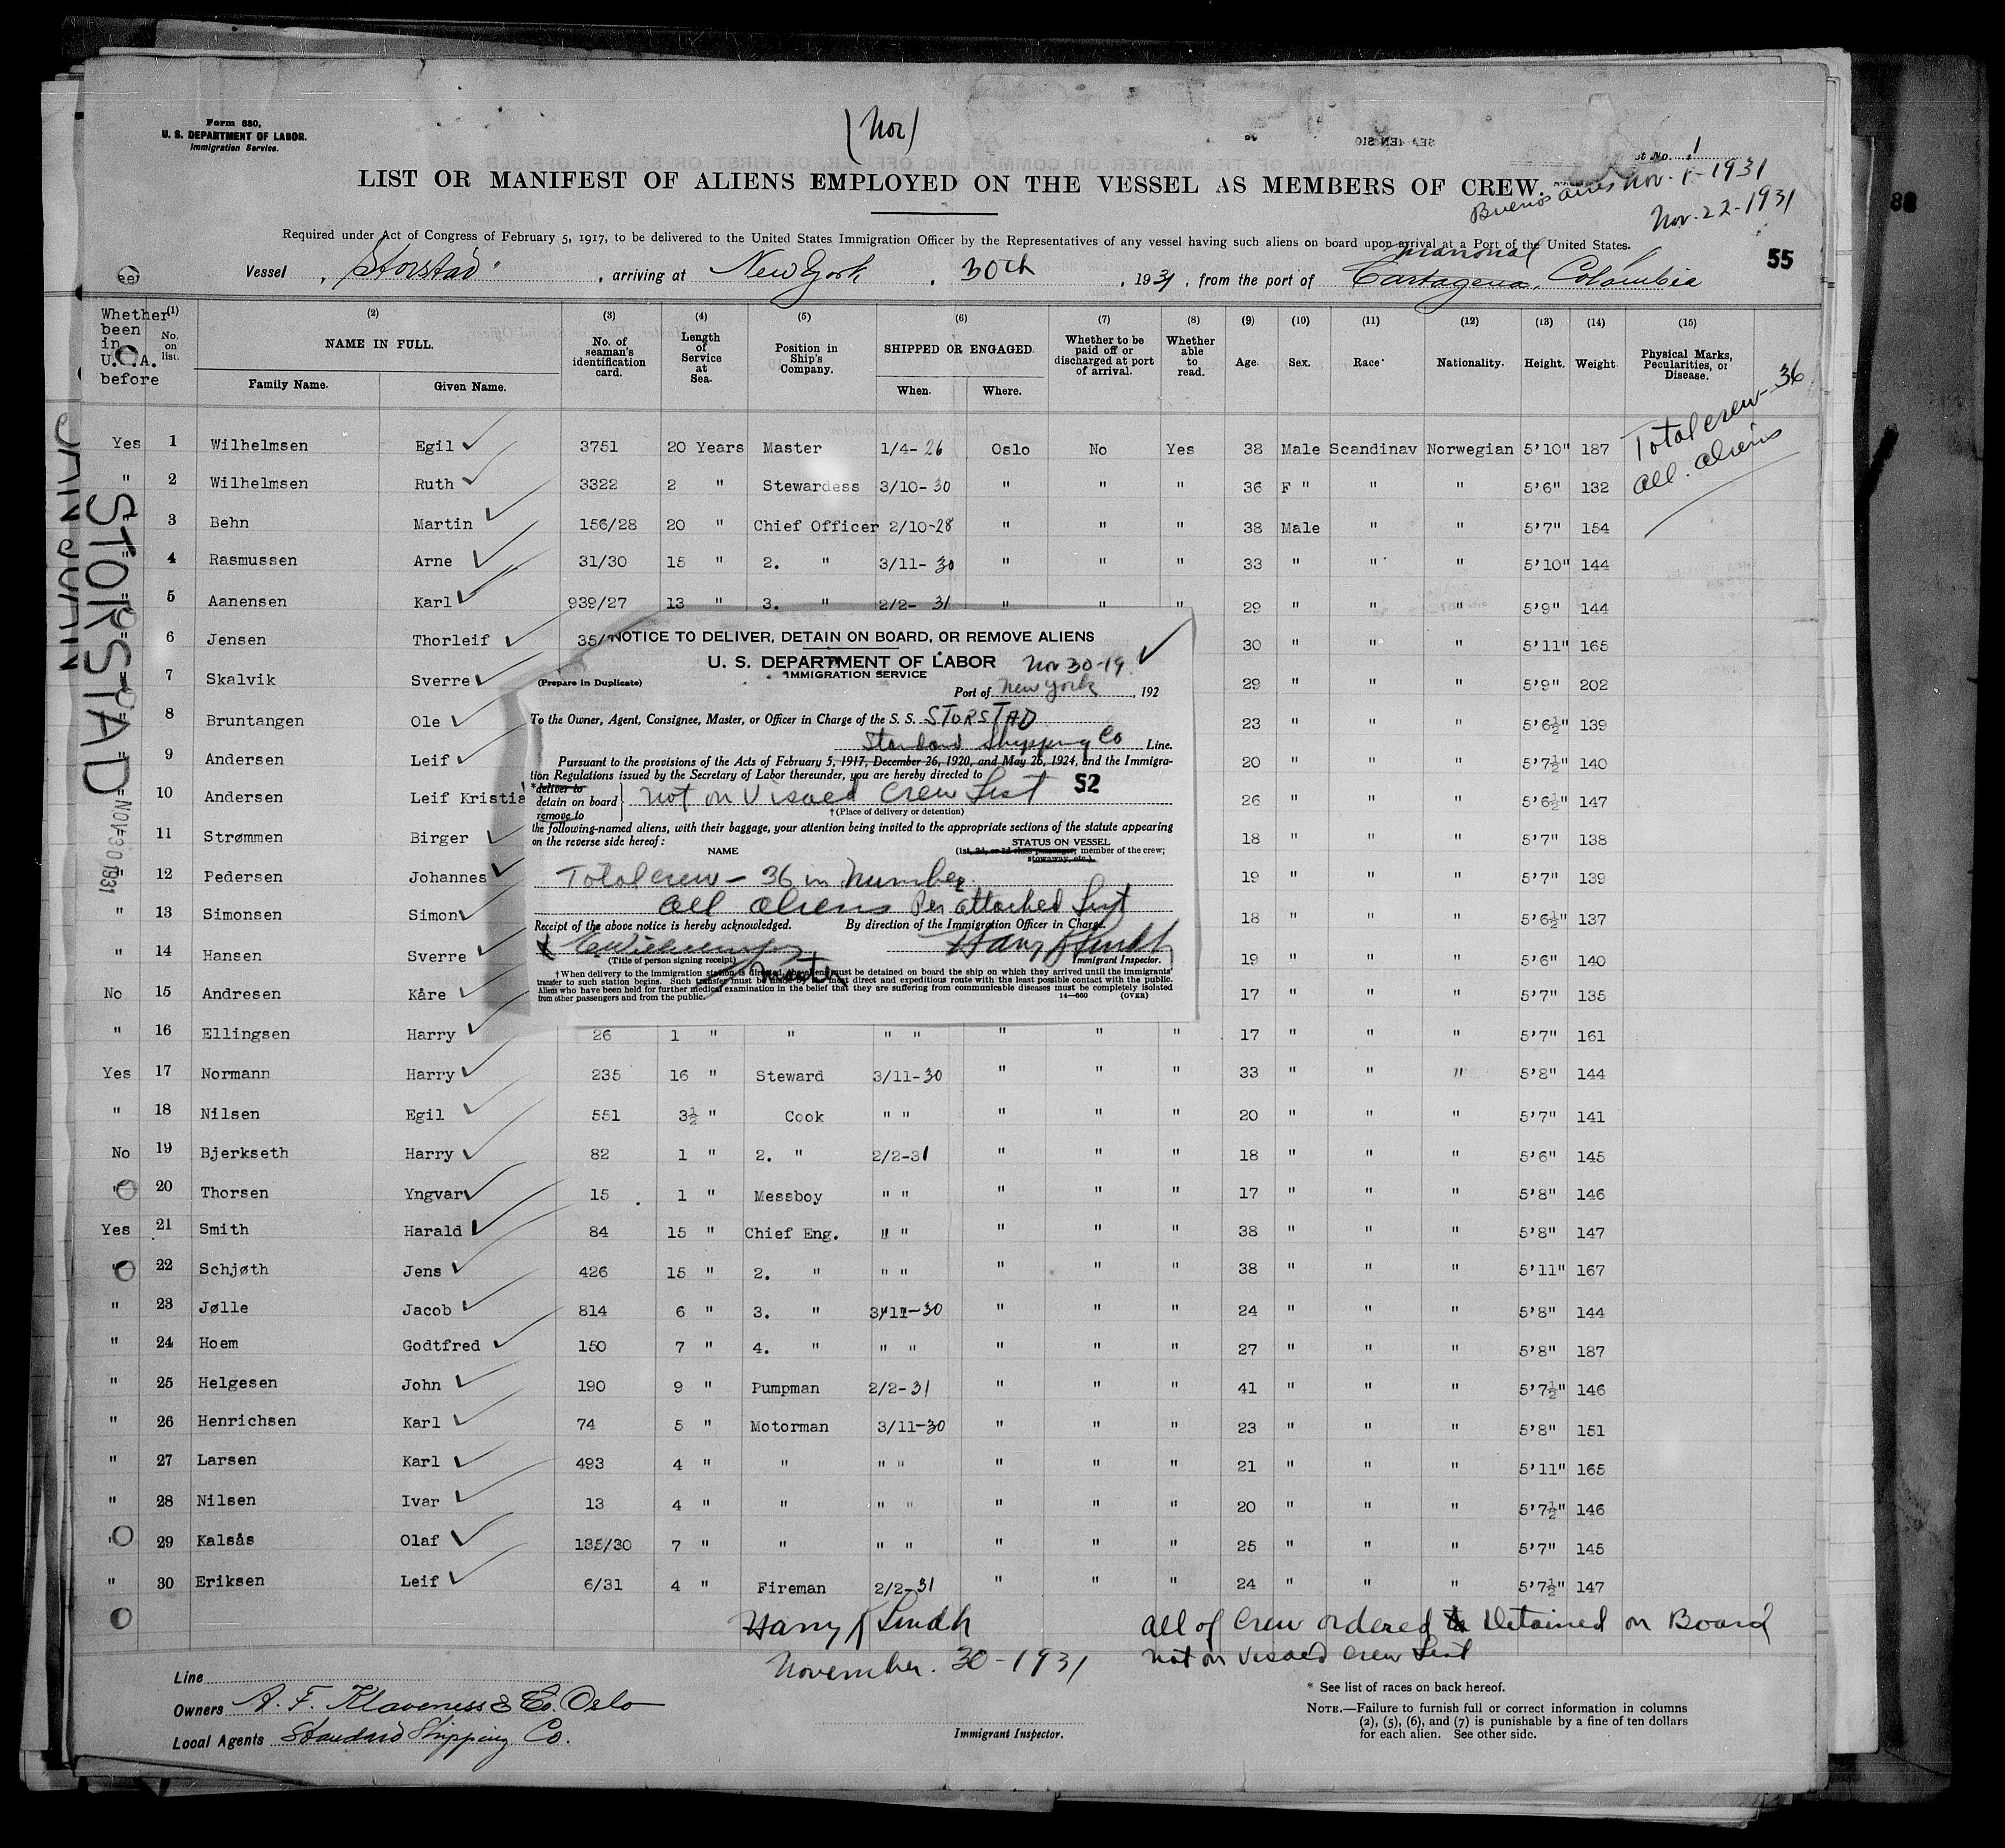 Form 680,
U. S. DEPARTMENT OF LABOR.
Immigration Service.
(Nor)
st No. 1
LIST OR MANIFEST OF ALIENS EMPLOYED ON THE VESSEL AS MEMBERS OF CREW.
Buenos Aires Nov. 1-1931
Nov. 22-1931
Required under Act of Congress of February 5, 1917, to be delivered to the United States Immigration Officer by the Representatives of any vessel having such aliens on board upon arrival at a Port of the United States.
88
55
Vessel Storstad, arriving at New York, 30th, 1931, from the port of Cartagena, Colombia
Whether been in U.S.A. before
(1) No. on list.
(2) NAME IN FULL.
Family Name. Given Name.
(3) No. of seaman's identification card.
(4) Length of Service at Sea.
(5) Position in Ship's Company.
(6) SHIPPED OR ENGAGED.
When. Where.
(7) Whether to be paid off or discharged at port of arrival.
(8) Whether able to read.
(9) Age.
(10) Sex.
(11) Race*
(12) Nationality.
(13) Height.
(14) Weight.
(15) Physical Marks, Peculiarities, or Disease.
Total crew - 36
all. aliens
Yes 1 Wilhelmsen Egil 3751 20 Years Master 1/4-26 Oslo No Yes 38 Male Scandinav Norwegian 5'10" 187
" 2 Wilhelmsen Ruth 3322 2 " Stewardess 3/10-30 " " " 36 F " " " 5'6" 132
3 Behn Martin 156/28 20 " Chief Officer 2/10-28 " " " 38 Male " " 5'7" 154
4 Rasmussen Arne 31/30 15 " 2. " 3/11-30 " " " 33 " " " 5'10" 144
5 Aanensen Karl 939/27 13 " 3. " 2/2-31 " " " 29 " " " 5'9" 144
6 Jensen Thorleif 35/ 30 " " " 5'11" 165
7 Skalvik Sverre 29 " " " 5'9" 202
8 Bruntangen Ole 23 " " " 5'6½" 139
9 Andersen Leif 20 " " " 5'7½" 140
10 Andersen Leif Kristia 26 " " " 5'6½" 147
11 Strømmen Birger 18 " " " 5'7" 138
12 Pedersen Johannes 19 " " " 5'7" 139
" 13 Simonsen Simon 18 " " " 5'6½" 137
" 14 Hansen Sverre 19 " " " 5'6" 140
No 15 Andresen Kåre 17 " " " 5'7" 135
" 16 Ellingsen Harry 26 1 " " " " " " " 17 " " " 5'7" 161
Yes 17 Normann Harry 235 16 " Steward 3/11-30 " " " 33 " " " 5'8" 144
" 18 Nilsen Egil 551 3½ " Cook " " " " " 20 " " " 5'7" 141
No 19 Bjerkseth Harry 82 1 " 2. " 2/2-31 " " " 18 " " " 5'6" 145
" 20 Thorsen Yngvar 15 1 " Messboy " " " " " 17 " " " 5'8" 146
Yes 21 Smith Harald 84 15 " Chief Eng. " " " " " 38 " " " 5'8" 147
" 22 Schjøth Jens 426 15 " 2. " " " " " " 38 " " " 5'11" 167
" 23 Jølle Jacob 814 6 " 3. " 3/11-30 " " " 24 " " " 5'8" 144
" 24 Hoem Godtfred 150 7 " 4. " " " " " " 27 " " " 5'8" 187
" 25 Helgesen John 190 9 " Pumpman 2/2-31 " " " 41 " " " 5'7½" 146
" 26 Henrichsen Karl 74 5 " Motorman 3/11-30 " " " 23 " " " 5'8" 151
" 27 Larsen Karl 493 4 " " " " " " " 21 " " " 5'11" 165
" 28 Nilsen Ivar 13 4 " " " " " " " 20 " " " 5'7½" 146
" 29 Kalsås Olaf 135/30 7 " " " " " " " 25 " " " 5'7" 145
" 30 Eriksen Leif 6/31 4 " Fireman 2/2-31 " " " 24 " " " 5'7½" 147
STORSTAD
NOV 30 1931
NOTICE TO DELIVER, DETAIN ON BOARD, OR REMOVE ALIENS
U. S. DEPARTMENT OF LABOR
IMMIGRATION SERVICE
Nov 30-19
(Prepare in Duplicate)
Port of New York, 192
To the Owner, Agent, Consignee, Master, or Officer in Charge of the S. S. STORSTAD
Standard Shipping Co Line.
Pursuant to the provisions of the Acts of February 5, 1917, December 26, 1920, and May 26, 1924, and the Immigra-
tion Regulations issued by the Secretary of Labor thereunder, you are hereby directed to
52
*deliver to
detain on board } not on Visaed Crew List
remove to
†(Place of delivery or detention)
the following-named aliens, with their baggage, your attention being invited to the appropriate sections of the statute appearing
on the reverse side hereof:
NAME
STATUS ON VESSEL
(1st, 2d, or 3d class passenger; member of the crew;
stowaway, etc.)
Total crew - 36 in Number
all aliens Per attached List
Receipt of the above notice is hereby acknowledged. By direction of the Immigration Officer in Charge.
X E Wilhelmsen Harry R Lindh
Master
(Title of person signing receipt) Immigrant Inspector.
†When delivery to the immigration station is directed, the aliens must be detained on board the ship on which they arrived until the immigrants'
transfer to such station begins. Such transfer must be made by the most direct and expeditious route with the least possible contact with the public.
Aliens who have been held for further medical examination in the belief that they are suffering from communicable diseases must be completely isolated
from other passengers and from the public.
14—660 (OVER)
Harry R Lindh
November. 30-1931
All of Crew ordered Detained on Board
not on Visaed Crew List
Line
Owners A. F. Klaveness & Co. Oslo
Local Agents Standard Shipping Co.
Immigrant Inspector.
* See list of races on back hereof.
NOTE.—Failure to furnish full or correct information in columns
(2), (5), (6), and (7) is punishable by a fine of ten dollars
for each alien. See other side.